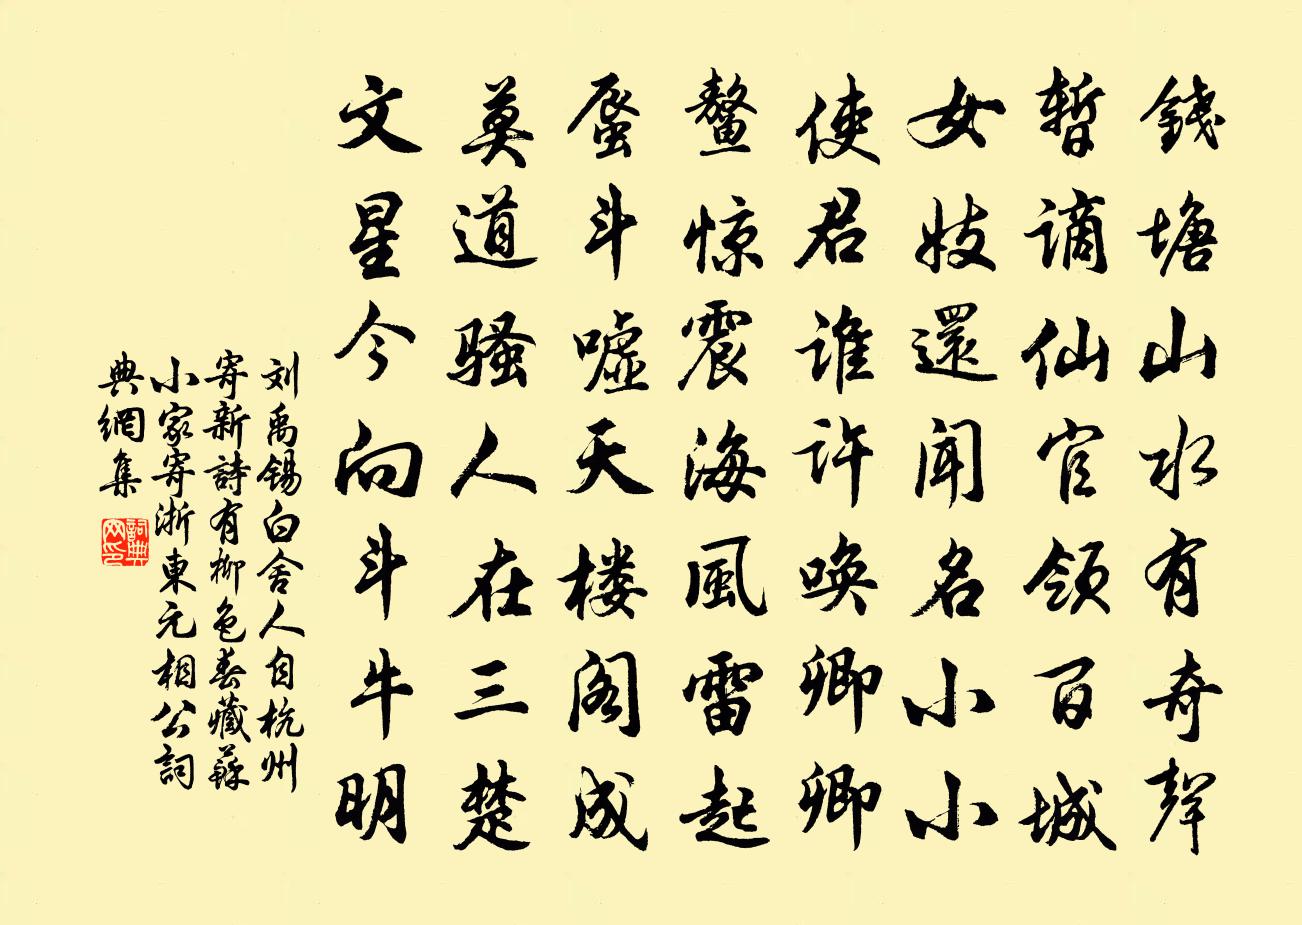 錢塘山水有奇聲
暫謫仙官領百城
女妓還闻名小小
使君谁許唤卿卿
鳌惊震海風雷起
蜃斗嘘天楼阁成
莫道骚人在三楚
文星今向斗牛明
刘禹锡白舍人自杭州
寄新詩有柳色春藏蘇
小家寄浙東元相公詞
典網集
詞典
网印